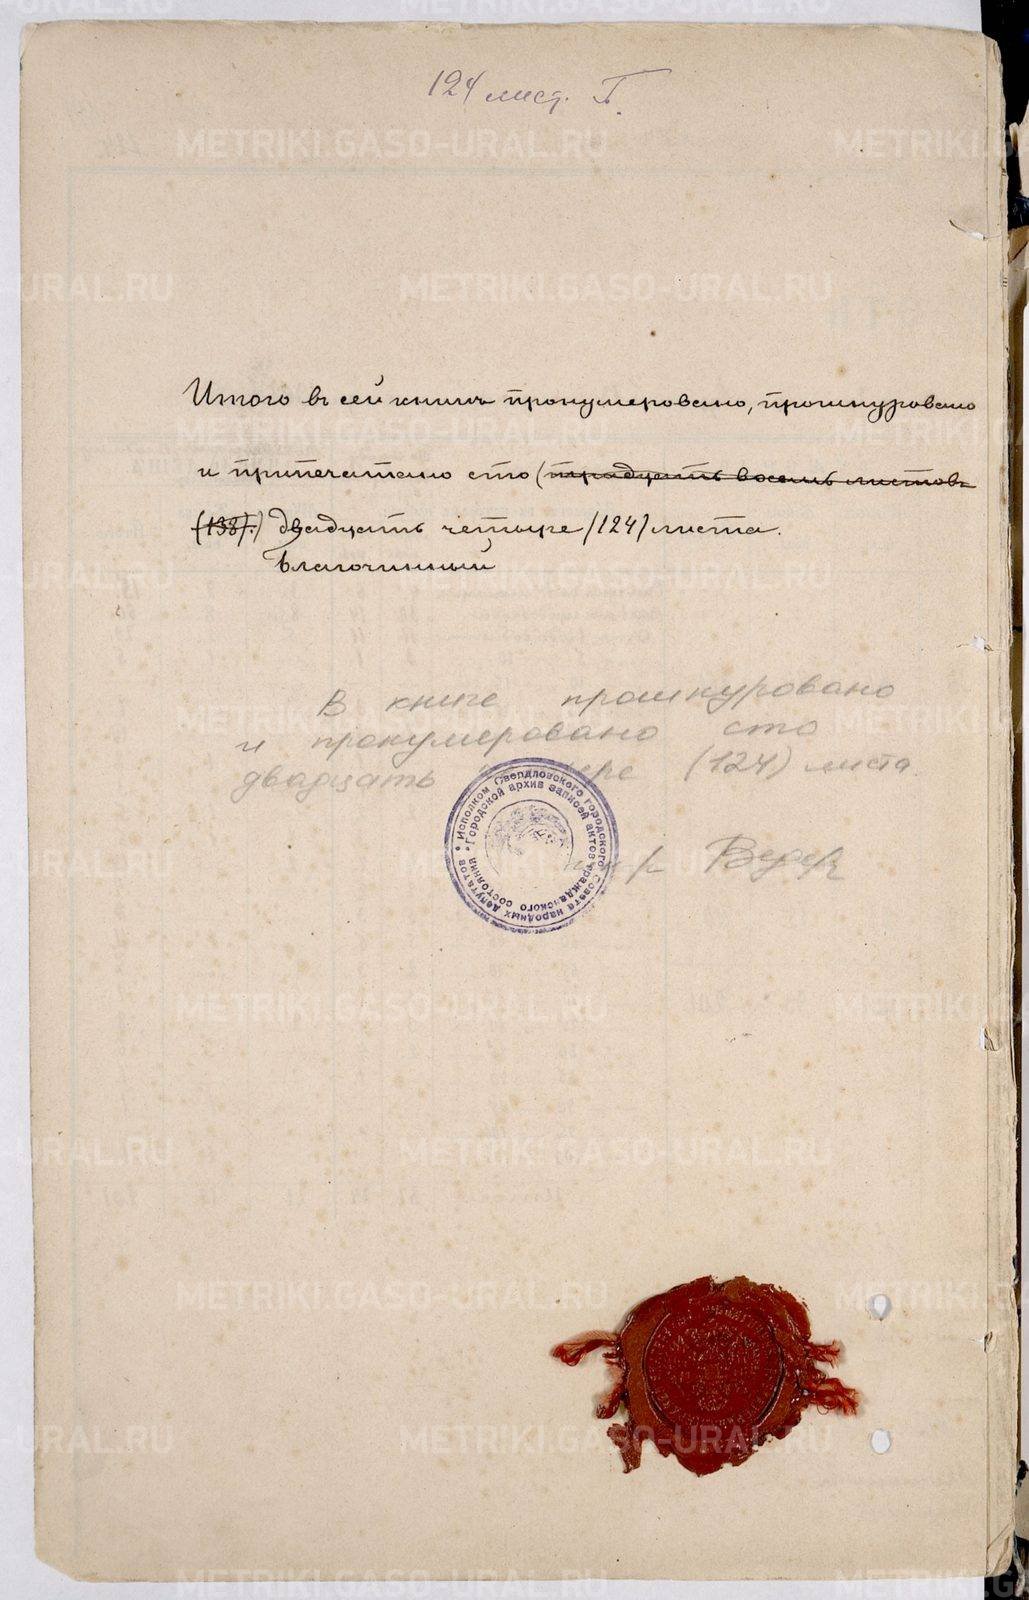 124 лист.
Итого въ сей книгѣ пронумеровано, прошнуровано
и припечатано сто (тридцать восемь листовъ
(138).) двадцать четыре (124) листа.
Благочинный
В книге прошнуровано
и пронумеровано сто
двадцать четыре (124) листа
Исполком Свердловского городского Совета народных депутатов
Городской архив записей актов гражданского состояния
METRIKI.GASO-URAL.RU